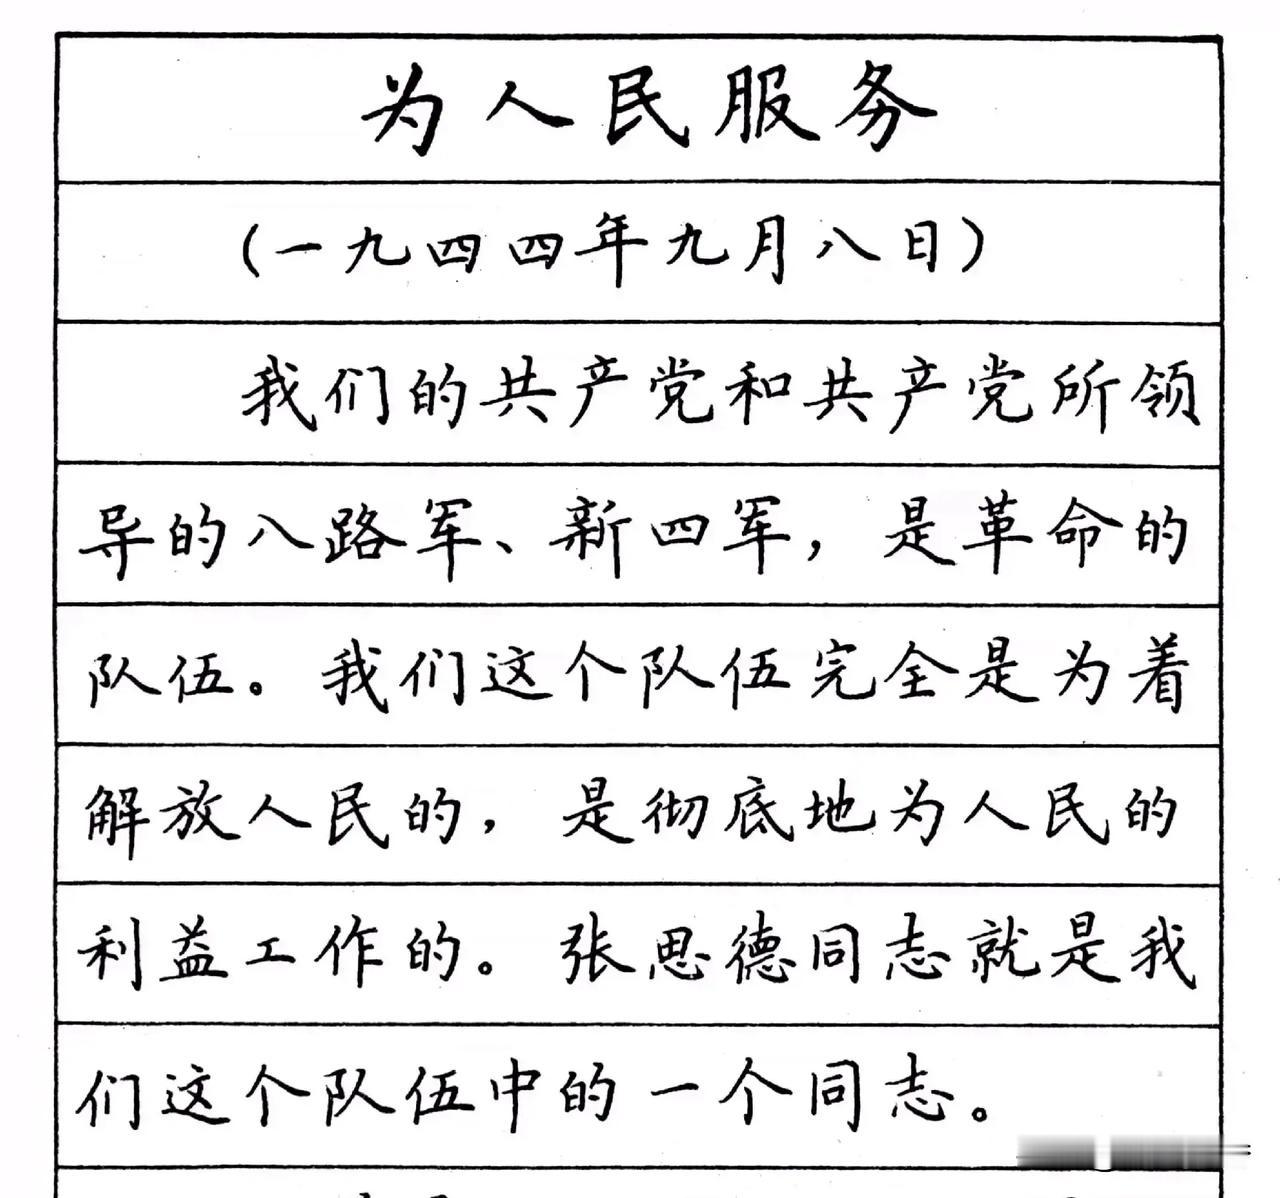 为人民服务
(一九四四年九月八日)
我们的共产党和共产党所领
导的八路军、新四军，是革命的
队伍。我们这个队伍完全是为着
解放人民的，是彻底地为人民的
利益工作的。张思德同志就是我
们这个队伍中的一个同志。